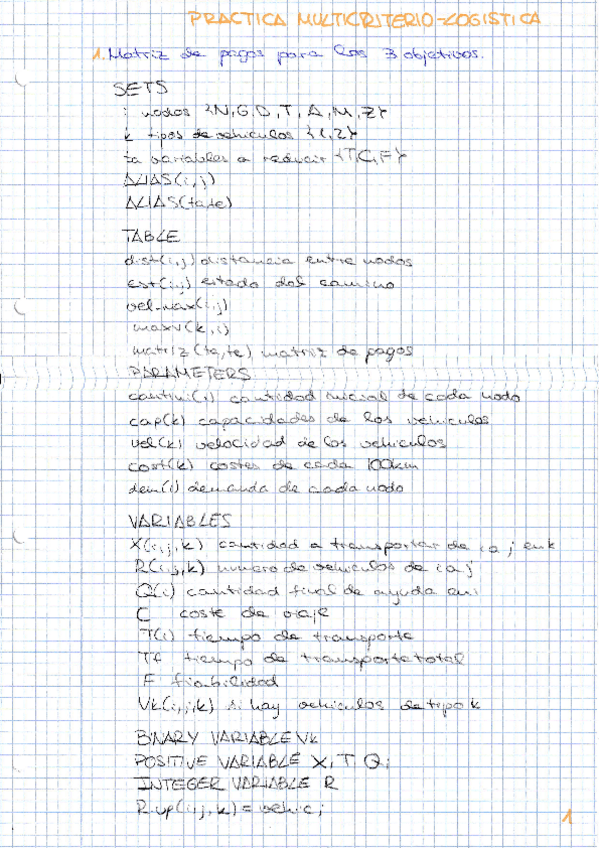 PRACTICA MULTICRITERIO-LOGISTICA
1. Matriz de pagos para los 3 objetivos.
SETS
i nodos {N,G,D,T,A,M,Z}
k tipos de vehiculos {1,2}
ta variables a reducir {T,C,F}
ALIAS(i,j)
ALIAS(ta,te)
TABLE
dist(i,j) distancia entre nodos
est(i,j) estado del camino
vel_max(i,j)
maxv(k,i)
matriz(ta,te) matriz de pagos
PARAMETERS
cantini(i) cantidad inicial de cada nodo
cap(k) capacidades de los vehiculos
vel(k) velocidad de los vehiculos
cost(k) costes de cada 100km
dem(i) demanda de cada nodo
VARIABLES
X(i,j,k) cantidad a transportar de i a j en k
R(i,j,k) numero de vehiculos de i a j
Q(i) cantidad final de ayuda en i
C coste de viaje
T(i) tiempo de transporte
Tf tiempo de transporte total
F fiabilidad
Vk(i,j,k) si hay vehiculos de tipo k
BINARY VARIABLE Vk
POSITIVE VARIABLE X, T, Q;
INTEGER VARIABLE R
R.up(i,j,k) = vehic;
1